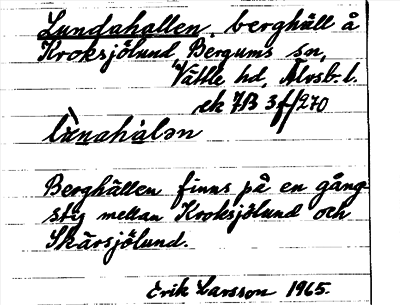 Lundahallen, berghäll å
Kroksjölund Bergums sn,
Vättle hd, Älvsb. l.
ek 7B 3f/270
Berghällen finns på en gång-
stig mellan Kroksjölund och
Skärsjölund.
Erik Larsson 1965.